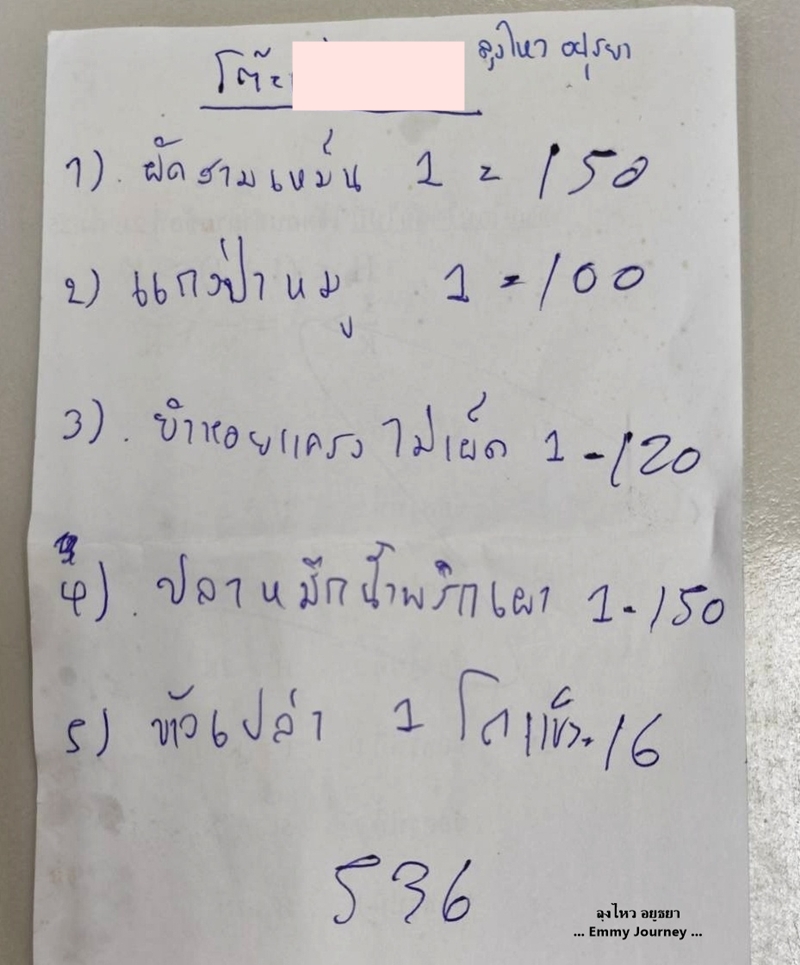 โต๊ะ ลุงไหว อยุธยา
1). ผัดฮามเหม็น 1 = 150
2) แกงป่าหมู 1 = 100
3). ยำหอยแครง ไม่เผ็ด 1 - 120
4). ปลาหมึกน้ำพริกเผา 1 - 150
5) ข้าวเปล่า 1 โถ 16
536
ลุงไหว อยุธยา
... Emmy Journey ...